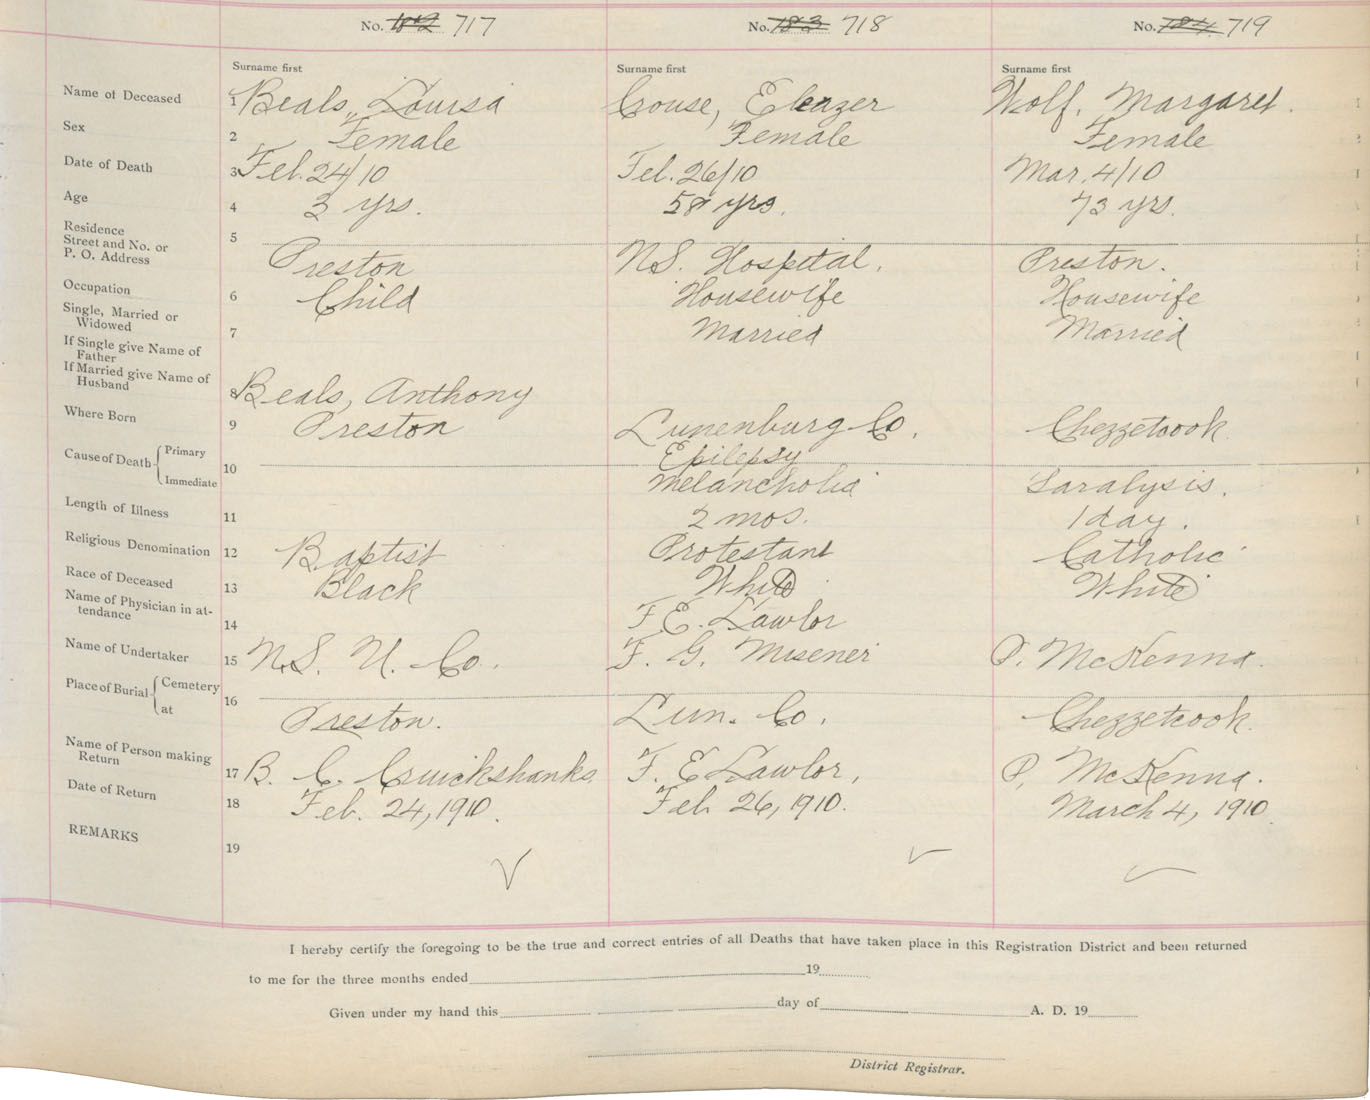 No. 182 717 No. 183 718 No. 184 719
Surname first Surname first Surname first
Name of Deceased 1 Beals, Louisa Crouse, Elenzer Wolf, Margaret.
Sex 2 Female Female Female
Date of Death 3 Feb. 24/10 Feb. 26/10 Mar. 4/10
Age 4 3 yrs. 58 yrs. 73 yrs.
Residence
Street and No. or
P. O. Address 5 Preston N.S. Hospital. Preston.
Occupation 6 Child Housewife Housewife
Single, Married or
Widowed 7 Married Married
If Single give Name of
Father
If Married give Name of
Husband 8 Beals, Anthony
Where Born 9 Preston Lunenburg Co. Chezzetcook
Cause of Death Primary Epilepsy
Immediate 10 Melancholia Paralysis.
Length of Illness 11 2 mos. 1 day.
Religious Denomination 12 Baptist Protestant Catholic
Race of Deceased 13 Black White White
Name of Physician in at-
tendance 14 F. E. Lawlor
Name of Undertaker 15 N.S. U. Co. F. G. Misener P. McKenna.
Place of Burial Cemetery
at 16 Preston. Lun. Co. Chezzetcook.
Name of Person making
Return 17 B. C. Cruickshanks F. E Lawlor, P. McKenna.
Date of Return 18 Feb. 24, 1910. Feb. 26, 1910. March 4, 1910
REMARKS 19
I hereby certify the foregoing to be the true and correct entries of all Deaths that have taken place in this Registration District and been returned
to me for the three months ended 19
Given under my hand this day of A. D. 19
District Registrar.